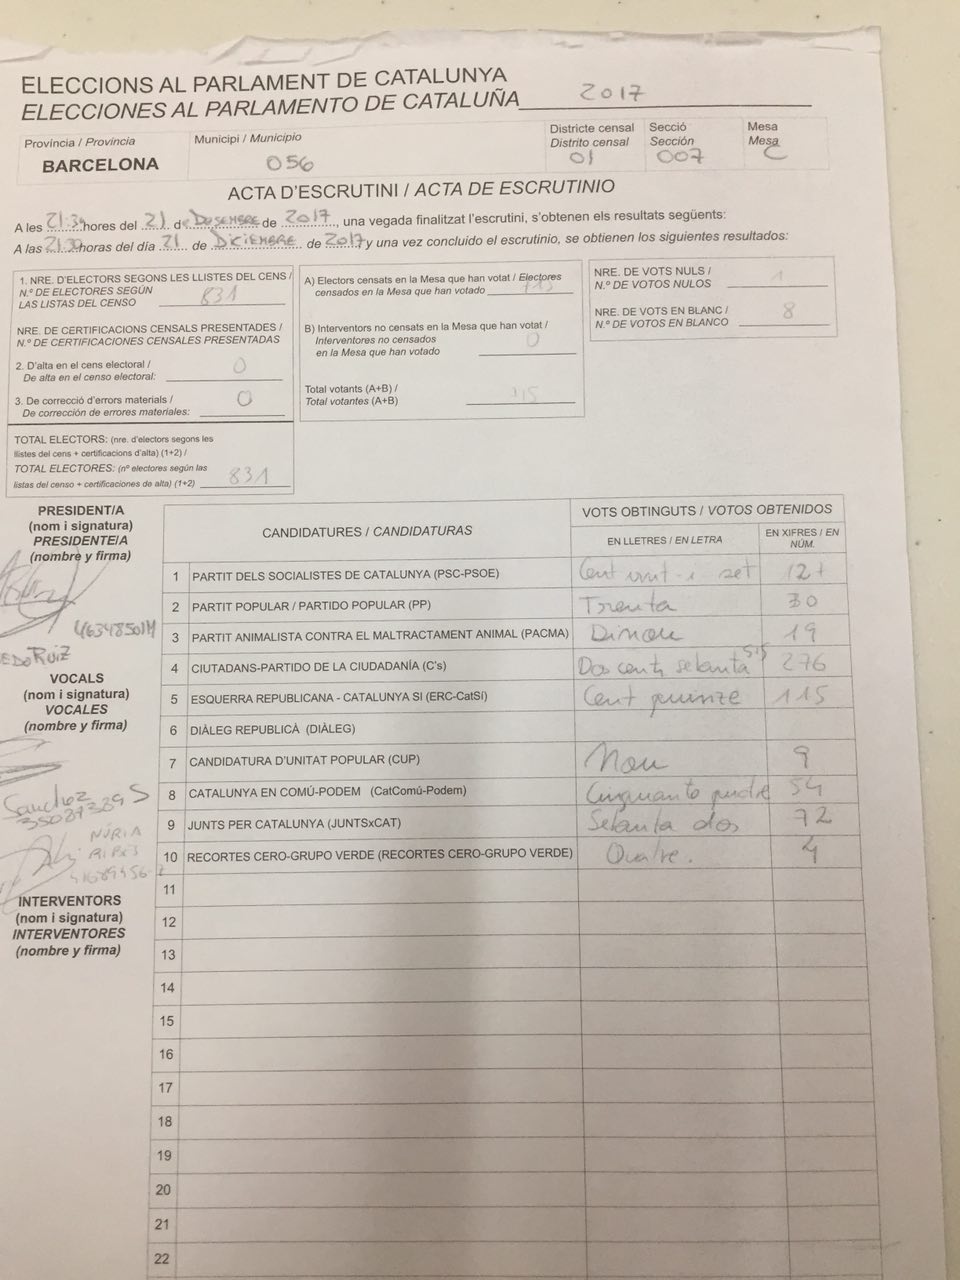 ELECCIONS AL PARLAMENT DE CATALUNYA
ELECCIONES AL PARLAMENTO DE CATALUÑA 2017
Província / Provincia
BARCELONA
Municipi / Municipio
056
Districte censal
Distrito censal
01
Secció
Sección
007
Mesa
Mesa
C
ACTA D'ESCRUTINI / ACTA DE ESCRUTINIO
A les 21:34 hores del 21 de DESEMBRE de 2017, una vegada finalitzat l'escrutini, s'obtenen els resultats següents:
A las 21:34 horas del día 21 de DICIEMBRE de 2017 y una vez concluido el escrutinio, se obtienen los siguientes resultados:
1. NRE. D'ELECTORS SEGONS LES LLISTES DEL CENS /
N.º DE ELECTORES SEGÚN
LAS LISTAS DEL CENSO 831
NRE. DE CERTIFICACIONS CENSALS PRESENTADES /
N.º DE CERTIFICACIONES CENSALES PRESENTADAS
2. D'alta en el cens electoral /
De alta en el censo electoral: 0
3. De correcció d'errors materials /
De corrección de errores materiales: 0
TOTAL ELECTORS: (nre. d'electors segons les
llistes del cens + certificacions d'alta) (1+2) /
TOTAL ELECTORES: (nº electores según las
listas del censo + certificaciones de alta) (1+2) 831
A) Electors censats en la Mesa que han votat / Electores
censados en la Mesa que han votado 715
B) Interventors no censats en la Mesa que han votat /
Interventores no censados
en la Mesa que han votado 0
Total votants (A+B) /
Total votantes (A+B) 715
NRE. DE VOTS NULS /
N.º DE VOTOS NULOS 1
NRE. DE VOTS EN BLANC /
N.º DE VOTOS EN BLANCO 8
PRESIDENT/A
(nom i signatura)
PRESIDENTE/A
(nombre y firma)
46348501M
EDO RUIZ
VOCALS
(nom i signatura)
VOCALES
(nombre y firma)
Sanchez S
35087389
NÚRIA
RIBES
INTERVENTORS
(nom i signatura)
INTERVENTORES
(nombre y firma)
CANDIDATURES / CANDIDATURAS
VOTS OBTINGUTS / VOTOS OBTENIDOS
EN LLETRES / EN LETRA
EN XIFRES / EN NÚM.
1 PARTIT DELS SOCIALISTES DE CATALUNYA (PSC-PSOE) Cent vint-i set 127
2 PARTIT POPULAR / PARTIDO POPULAR (PP) Trenta 30
3 PARTIT ANIMALISTA CONTRA EL MALTRACTAMENT ANIMAL (PACMA) Dinou 19
4 CIUTADANS-PARTIDO DE LA CIUDADANÍA (C's) Dos cents setanta sis 276
5 ESQUERRA REPUBLICANA - CATALUNYA SI (ERC-CatSí) Cent quinze 115
6 DIÀLEG REPUBLICÀ (DIÀLEG)
7 CANDIDATURA D'UNITAT POPULAR (CUP) Nou 9
8 CATALUNYA EN COMÚ-PODEM (CatComú-Podem) Cinquanta quatre 54
9 JUNTS PER CATALUNYA (JUNTSxCAT) Setanta dos 72
10 RECORTES CERO-GRUPO VERDE (RECORTES CERO-GRUPO VERDE) Quatre. 4
11
12
13
14
15
16
17
18
19
20
21
22